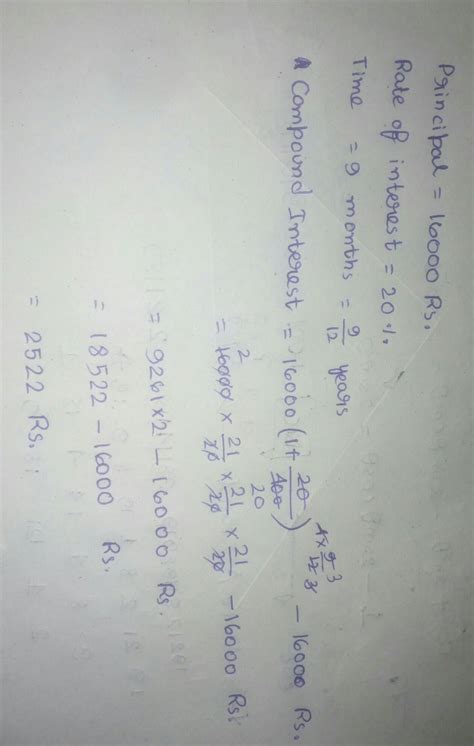 Principal = 16000 Rs.
Rate of interest = 20 %.
Time = 9 months = 9/12 years
Compound Interest = 16000 (1 + 20/400)^(4 × 9/12 3) - 16000 Rs.
= 16000 2 × 21/20 × 21/20 × 21/20 - 16000 Rs.
= 9261 × 2 - 16000 Rs.
= 18522 - 16000 Rs.
= 2522 Rs.